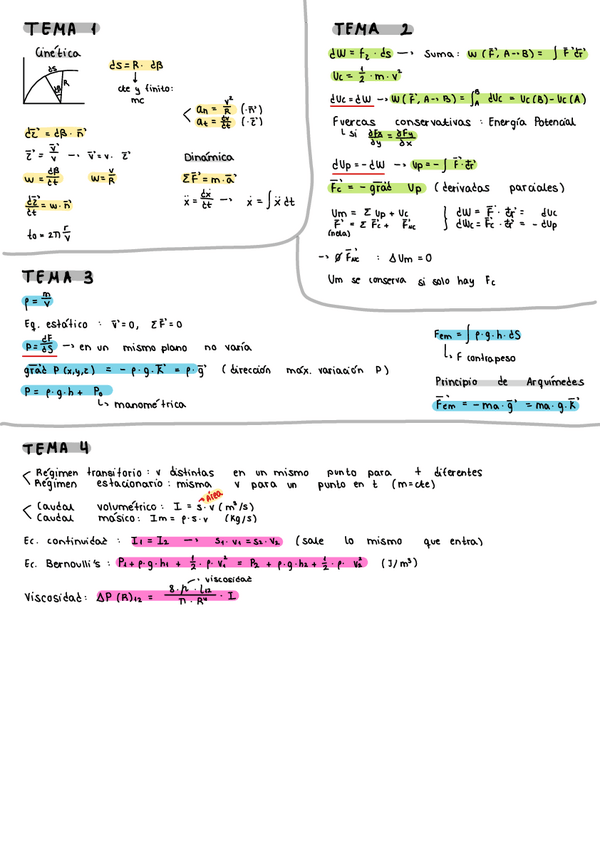 TEMA 1
Cinética
ds
R
dβ
ds = R · dβ
cte y finito:
mc
an = v²/R (·n⃗)
at = dv/dt (·τ⃗)
dτ⃗ = dβ · n⃗
τ⃗ = v⃗/v → v⃗ = v · τ⃗
w = dβ/dt w = v/R
dτ⃗/dt = w · n⃗
to = 2π r/v
Dinámica
ΣF⃗ = m · a⃗
ẋ = dx/dt → x = ∫ ẋ dt
TEMA 2
dW = Fτ · ds → Suma: W (F⃗, A→B) = ∫ F⃗ dr⃗
Uc = 1/2 · m · v²
dUc = dW → W (F⃗, A→B) = ∫ᴬᴮ dUc = Uc(B) - Uc(A)
Fuerzas conservativas : Energía Potencial
si ∂Fx/∂y = ∂Fy/∂x
dUp = -dW → Up = - ∫ F⃗ · dr⃗
F⃗c = - grad Up (derivadas parciales)
Um = Σ Up + Uc
F⃗ = Σ F⃗c + F⃗nc
dW = F⃗ · dr⃗ = dUc
dWc = F⃗c · dr⃗ = - dUp
→ ∅ F⃗nc : ΔUm = 0
Um se conserva si solo hay Fc
TEMA 3
ρ = m/V
Eq. estático : v⃗ = 0, ΣF⃗ = 0
P = dF/dS → en un mismo plano no varía
grad P (x,y,z) = - ρ · g · K⃗ = ρ · g⃗ (dirección máx. variación P)
P = ρ · g · h + P₀
manométrica
Fem = ∫ ρ · g · h · dS
F contrapeso
Principio de Arquímedes
F⃗em = - ma · g⃗ = ma · g · K⃗
TEMA 4
Régimen transitorio : v distintas en un mismo punto para t diferentes
Régimen estacionario : misma v para un punto en t (m=cte)
Área
Caudal volumétrico : I = s · v (m³/s)
Caudal másico : Im = ρ · s · v (Kg/s)
Ec. continuidad : I₁ = I₂ → s₁ · v₁ = s₂ · v₂ (sale lo mismo que entra)
Ec. Bernoulli's : P₁ + ρ · g · h₁ + 1/2 · ρ · v₁² = P₂ + ρ · g · h₂ + 1/2 · ρ · v₂² (J/m³)
viscosidad
Viscosidad : ΔP (R)₁₂ = 8 · μ · l₁₂ / π · R⁴ · I